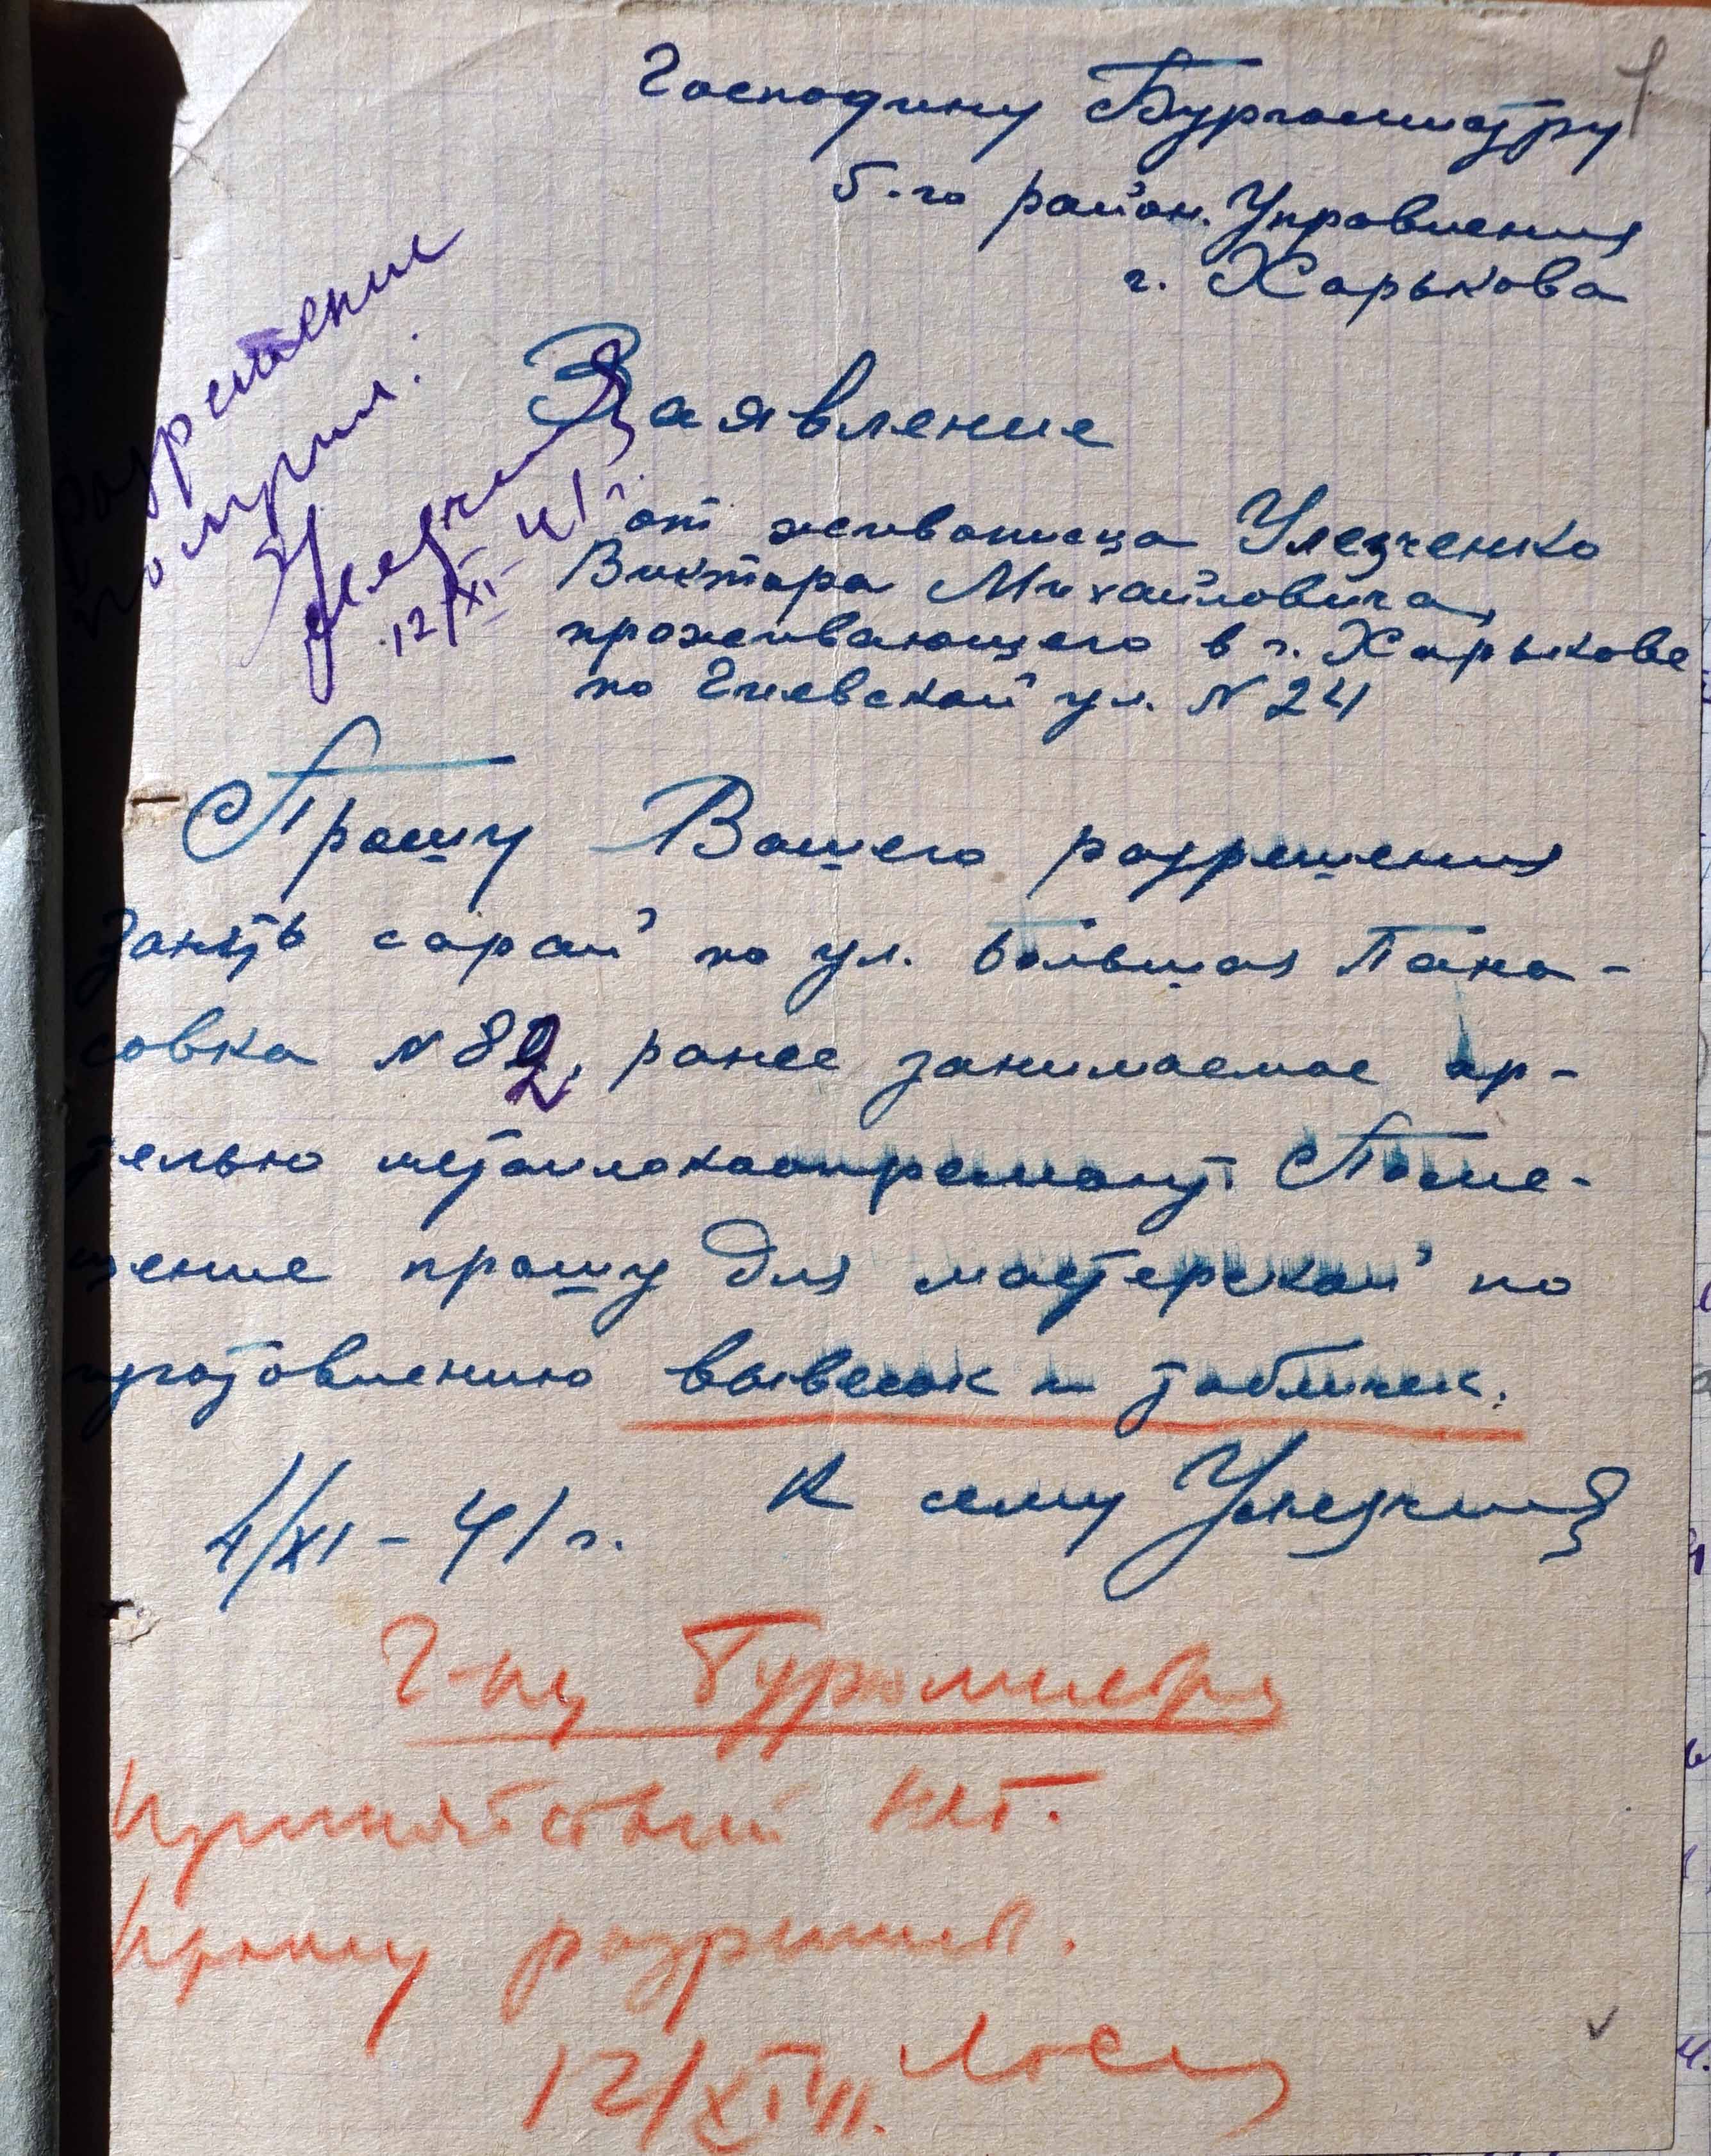 Господину Бургомистру
5-го район. Управления
г. Харькова
Разрешение
получил:
12/XI-41г.
Заявление
от живописца Улезченко
Виктора Михайловича,
проживающего в г. Харькове
по Гиевской ул. N 24
Прошу Вашего разрешения
занять сарай по ул. Большая Пана-
совка N 82, ранее занимаемое ар-
телью металлокоопремонт. Поме-
щение прошу для мастерской по
изготовлению вывесок и табличек.
4/XI-41г. К сему Улезченко
Г-ну Бургомистру
Препятствий нет.
Прошу разрешить.
12/XI